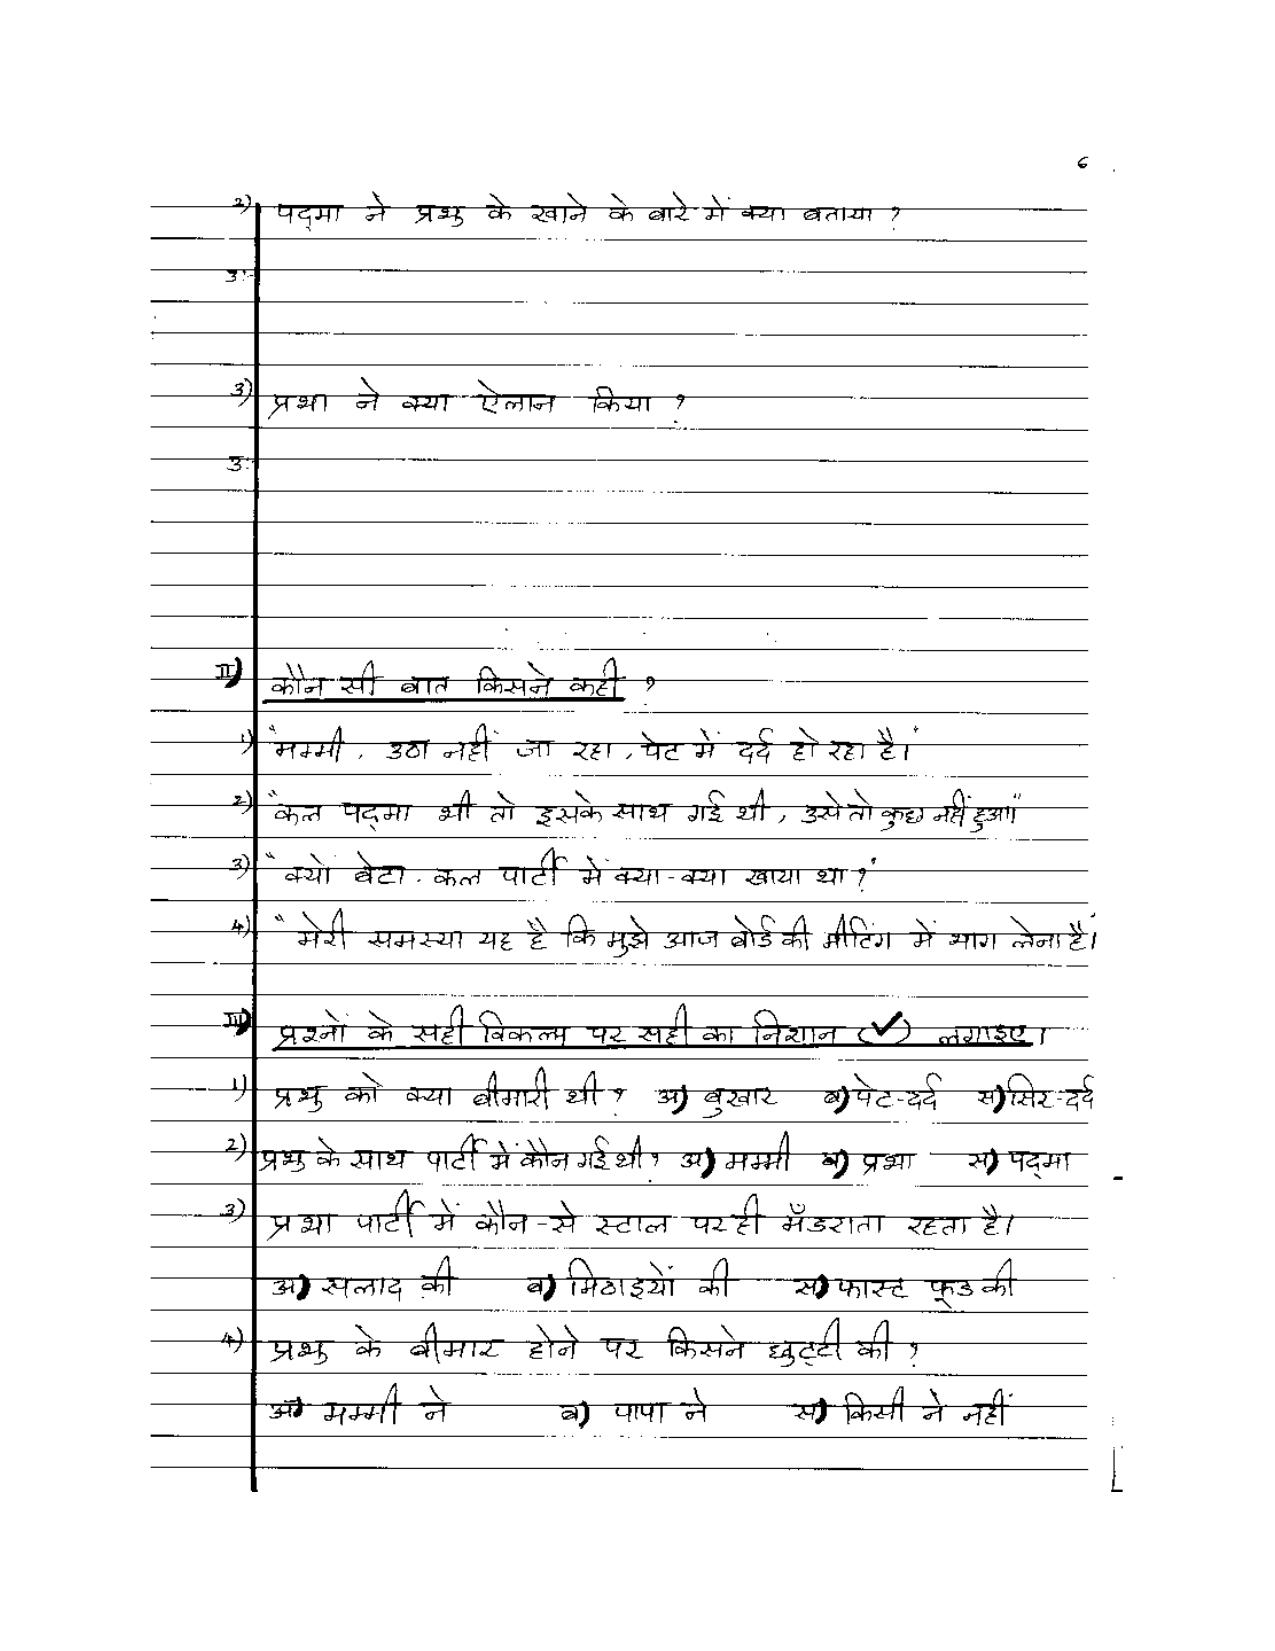 6
2) पद्मा ने प्रभु के खाने के बारे में क्या बताया ?
उ:-
3) प्रभा ने क्या ऐलान किया ?
उ:-
II) कौन सी बात किसने कही ?
1) "मम्मी, उठा नहीं जा रहा, पेट में दर्द हो रहा है।"
2) "कल पद्मा भी तो इसके साथ गई थी, उसे तो कुछ नहीं हुआ।"
3) "क्यों बेटा. कल पार्टी में क्या-क्या खाया था?"
4) "मेरी समस्या यह है कि मुझे आज बोर्ड की मीटिंग में भाग लेना है।
III) प्रश्नों के सही विकल्प पर सही का निशान (✓) लगाइए।
1) प्रभु को क्या बीमारी थी ? अ) बुखार ब) पेट-दर्द स) सिर-दर्द
2) प्रभु के साथ पार्टी में कौन गई थी? अ) मम्मी ब) प्रभा स) पद्मा
3) प्रभा पार्टी में कौन-से स्टाल पर ही मँडराता रहता है।
अ) सलाद की ब) मिठाइयों की स) फास्ट फूड की
4) प्रभु के बीमार होने पर किसने छुट्टी की ?
अ) मम्मी ने ब) पापा ने स) किसी ने नहीं